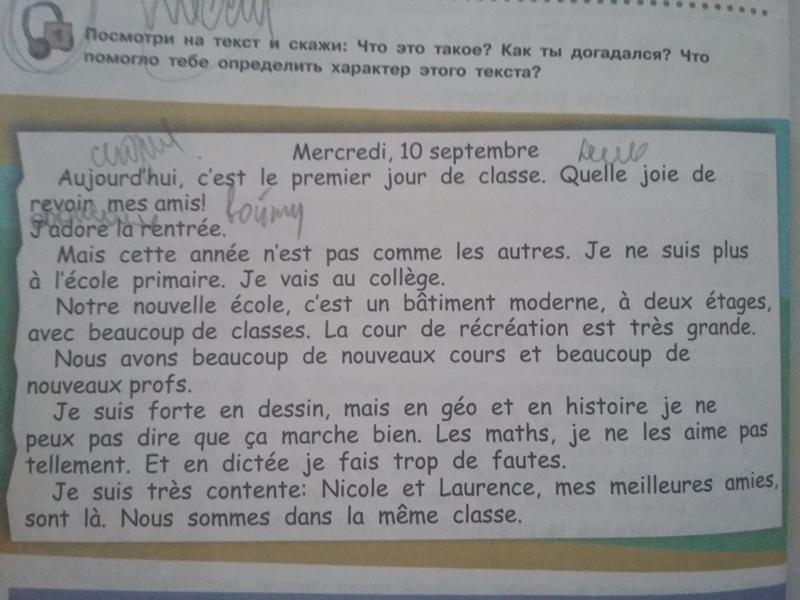 1
Посмотри на текст и скажи: Что это такое? Как ты догадался? Что
помогло тебе определить характер этого текста?
Mercredi, 10 septembre
Aujourd'hui, c'est le premier jour de classe. Quelle joie de
revoir mes amis!
J'adore la rentrée.
Mais cette année n'est pas comme les autres. Je ne suis plus
à l'école primaire. Je vais au collège.
Notre nouvelle école, c'est un bâtiment moderne, à deux étages,
avec beaucoup de classes. La cour de récréation est très grande.
Nous avons beaucoup de nouveaux cours et beaucoup de
nouveaux profs.
Je suis forte en dessin, mais en géo et en histoire je ne
peux pas dire que ça marche bien. Les maths, je ne les aime pas
tellement. Et en dictée je fais trop de fautes.
Je suis très contente: Nicole et Laurence, mes meilleures amies,
sont là. Nous sommes dans la même classe.